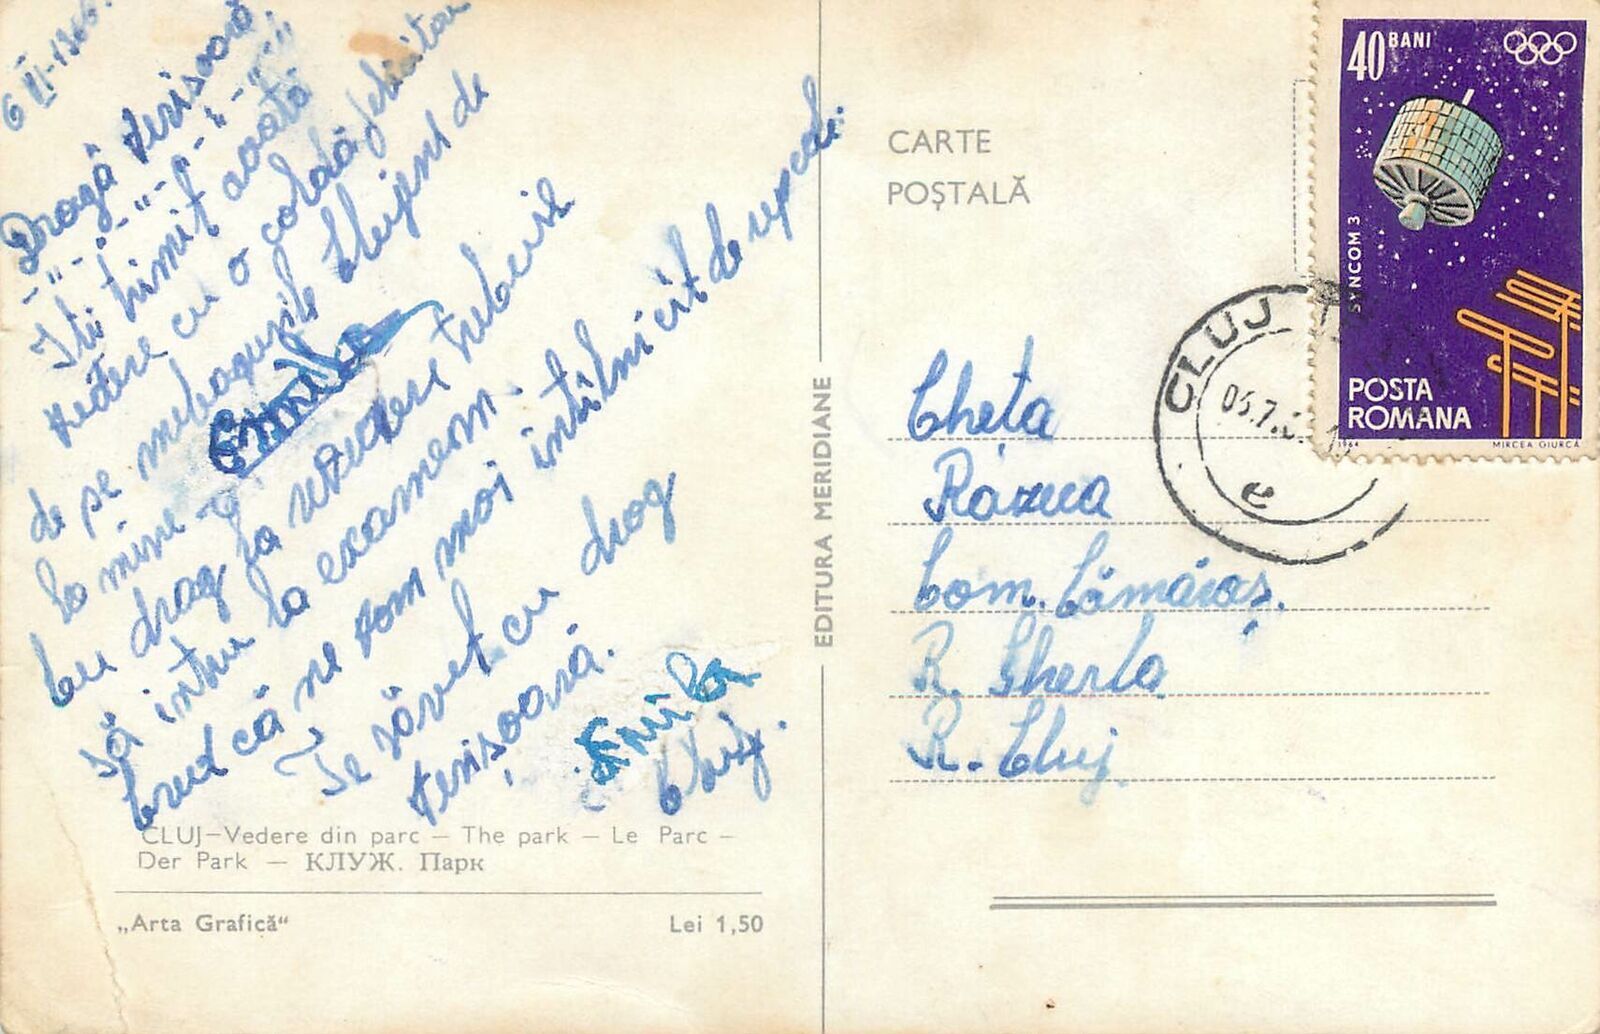 6 VII-1966.
Dragă verișoară,
Iți trimit acestă
vedere cu o caldă felicitare
de pe meleagurile Clujene de
la mine
Emilia
Cu drag la revedere trebuise
să intru la examem.
Cred că ne vom mai intîlni cit de repede.
Te sărut cu drag
verișoară.
Emilia
Cluj.
CLUJ–Vedere din parc – The park – Le Parc –
Der Park – КЛУЖ. Парк
„Arta Grafică“ Lei 1,50
EDITURA MERIDIANE
CARTE
POȘTALĂ
40 BANI
SYNCOM 3
POSTA
ROMANA
1964 MIRCEA GIURCĂ
CLUJ
06.7.
e
Cheța
Com. Cămăraș.
R. Gherla
R. Cluj.